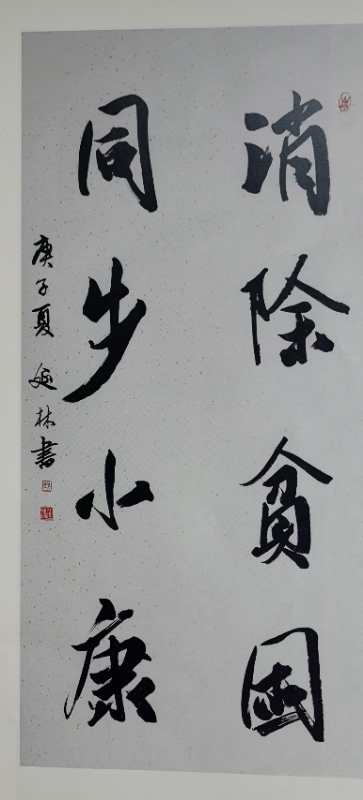 消除贫困
同步小康
庚子夏 延林書